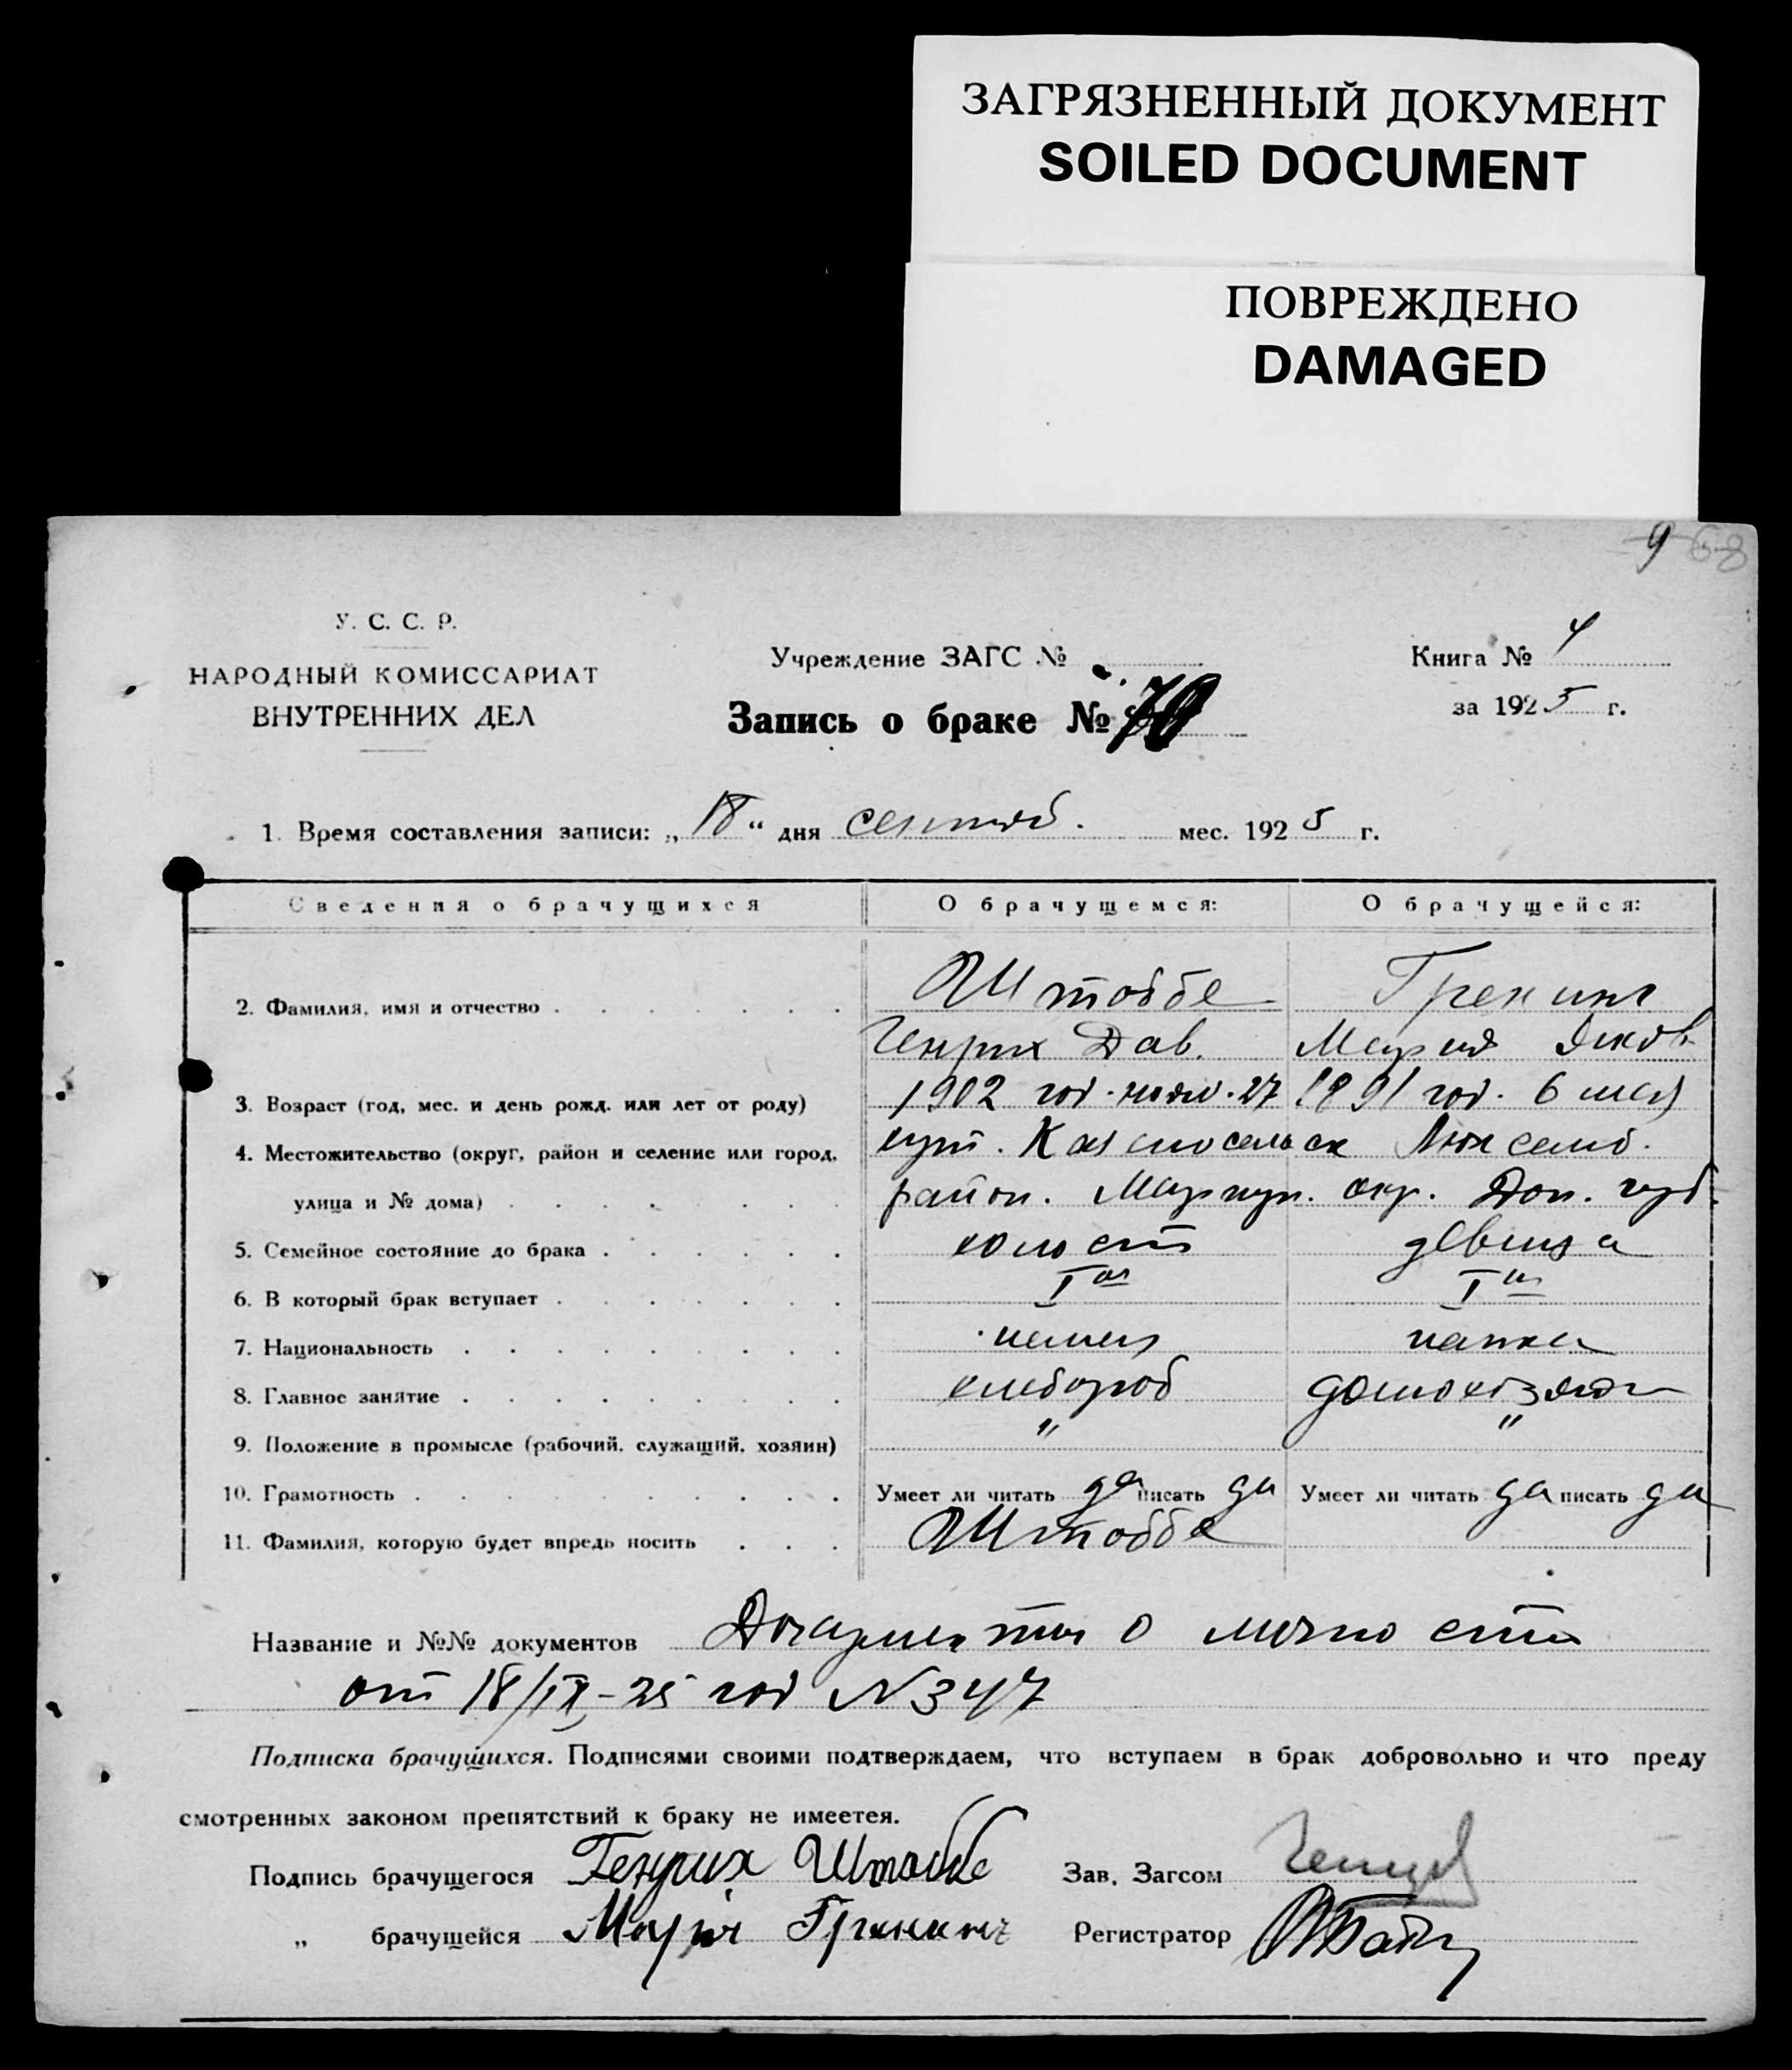 ЗАГРЯЗНЕННЫЙ ДОКУМЕНТ
SOILED DOCUMENT
ПОВРЕЖДЕНО
DAMAGED
9 68
У. С. С. Р.
НАРОДНЫЙ КОМИССАРИАТ
ВНУТРЕННИХ ДЕЛ
Учреждение ЗАГС №
Запись о браке № 70
Книга № 4
за 1925 г.
1. Время составления записи: „18“ дня сентяб. мес. 1925 г.
Сведения о брачущихся О брачущемся: О брачущейся:
2. Фамилия, имя и отчество Штоббе Гренинг
Генрих Дав. Мария Яков
3. Возраст (год, мес. и день рожд. или лет от роду) 1902 год. 27 1891 год. 6 мая
4. Местожительство (округ, район и селение или город, Люксемб.
улица и № дома) район. Мариуп. окр. Дон. губ.
5. Семейное состояние до брака холост девица
6. В который брак вступает I ый I ый
7. Национальность немец немка
8. Главное занятие хлебороб домохозяйк
9. Положение в промысле (рабочий, служащий, хозяин) " "
10. Грамотность Умеет ли читать да писать да Умеет ли читать да писать да
11. Фамилия, которую будет впредь носить Штоббе
Название и №№ документов Документы о личности
от 18/IX-25 год N 347
Подписка брачущихся. Подписями своими подтверждаем, что вступаем в брак добровольно и что преду
смотренных законом препятствий к браку не имеетея.
Подпись брачущегося Генрих Штоббе Зав. Загсом
„ брачущейся Марія Гренингъ Регистратор